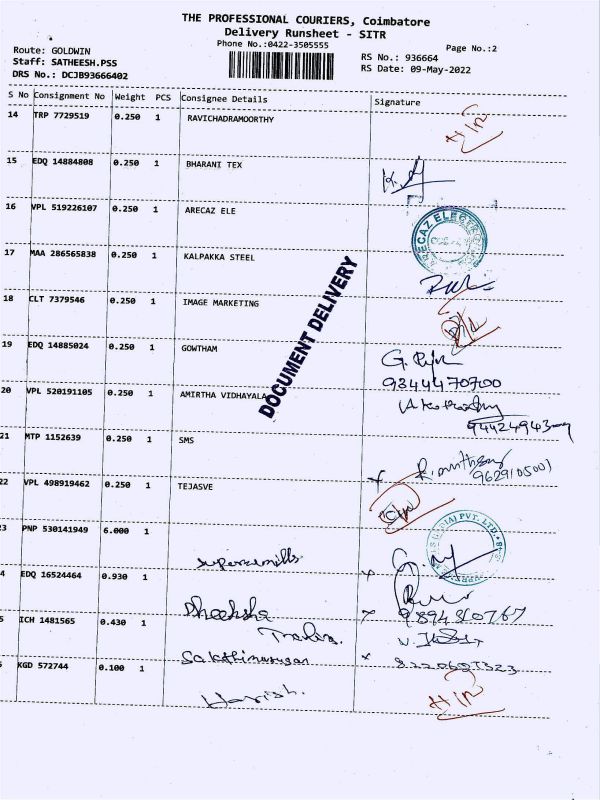 THE PROFESSIONAL COURIERS, Coimbatore
Delivery Runsheet - SITR
Phone No.:0422-3505555
Page No.:2
Route: GOLDWIN
RS No.: 936664
Staff: SATHEESH.PSS
RS Date: 09-May-2022
DRS No.: DCJB93666402
S No Consignment No Weight PCS Consignee Details Signature
14 TRP 7729519 0.250 1 RAVICHADRAMOORTHY
15 EDQ 14884808 0.250 1 BHARANI TEX
16 VPL 519226107 0.250 1 ARECAZ ELE
17 MAA 286565838 0.250 1 KALPAKKA STEEL
18 CLT 7379546 0.250 1 IMAGE MARKETING
19 EDQ 14885024 0.250 1 GOWTHAM
9344470700
20 VPL 520191105 0.250 1 AMIRTHA VIDHYALA
DOCUMENT DELIVERY
21 MTP 1152639 0.250 1 SMS
22 VPL 498919462 0.250 1 TEJASVE
3 PNP 530141949 6.000 1
4 EDQ 16524464 0.930 1
Dheeksha
5 ICH 1481565 0.430 1
KGD 572744 0.100 1
Harish.